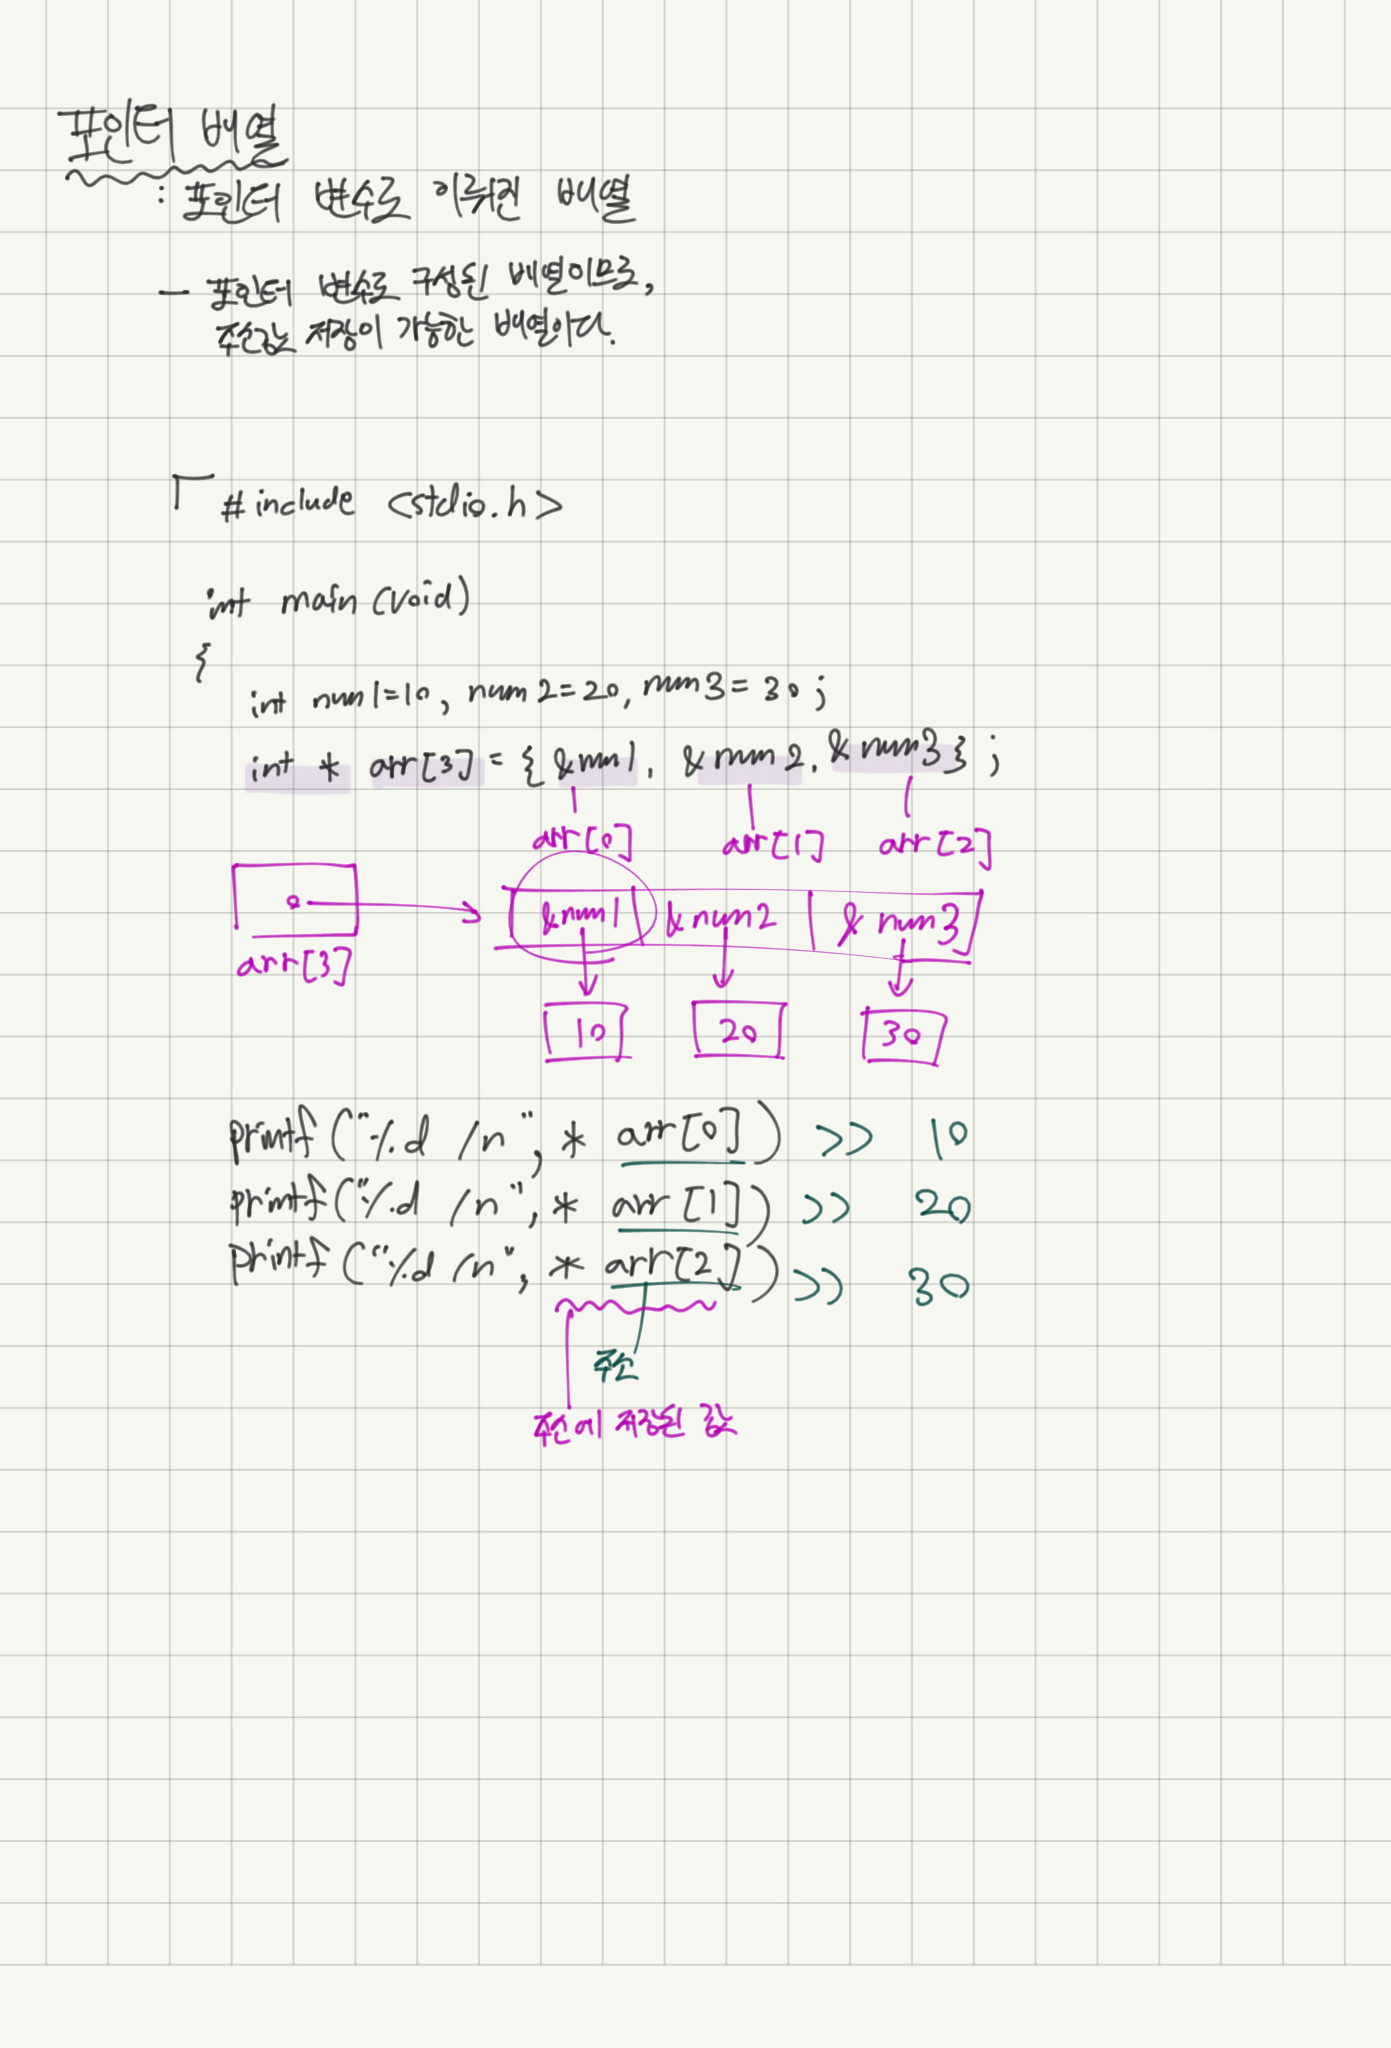 포인터 배열
: 포인터 변수로 이뤄진 배열
- 포인터 변수로 구성된 배열이므로,
주소값 저장이 가능한 배열이다.
#include <stdio.h>
int main (void)
{
int num1=10, num2=20, num3=30;
int * arr[3] = { &num1, &num2, &num3 };
arr[0] arr[1] arr[2]
&num1 &num2 &num3
arr[3]
10 20 30
printf("%d /n", * arr[0]) >> 10
printf("%d /n", * arr[1]) >> 20
printf("%d /n", * arr[2]) >> 30
주소
주소에 저장된 값